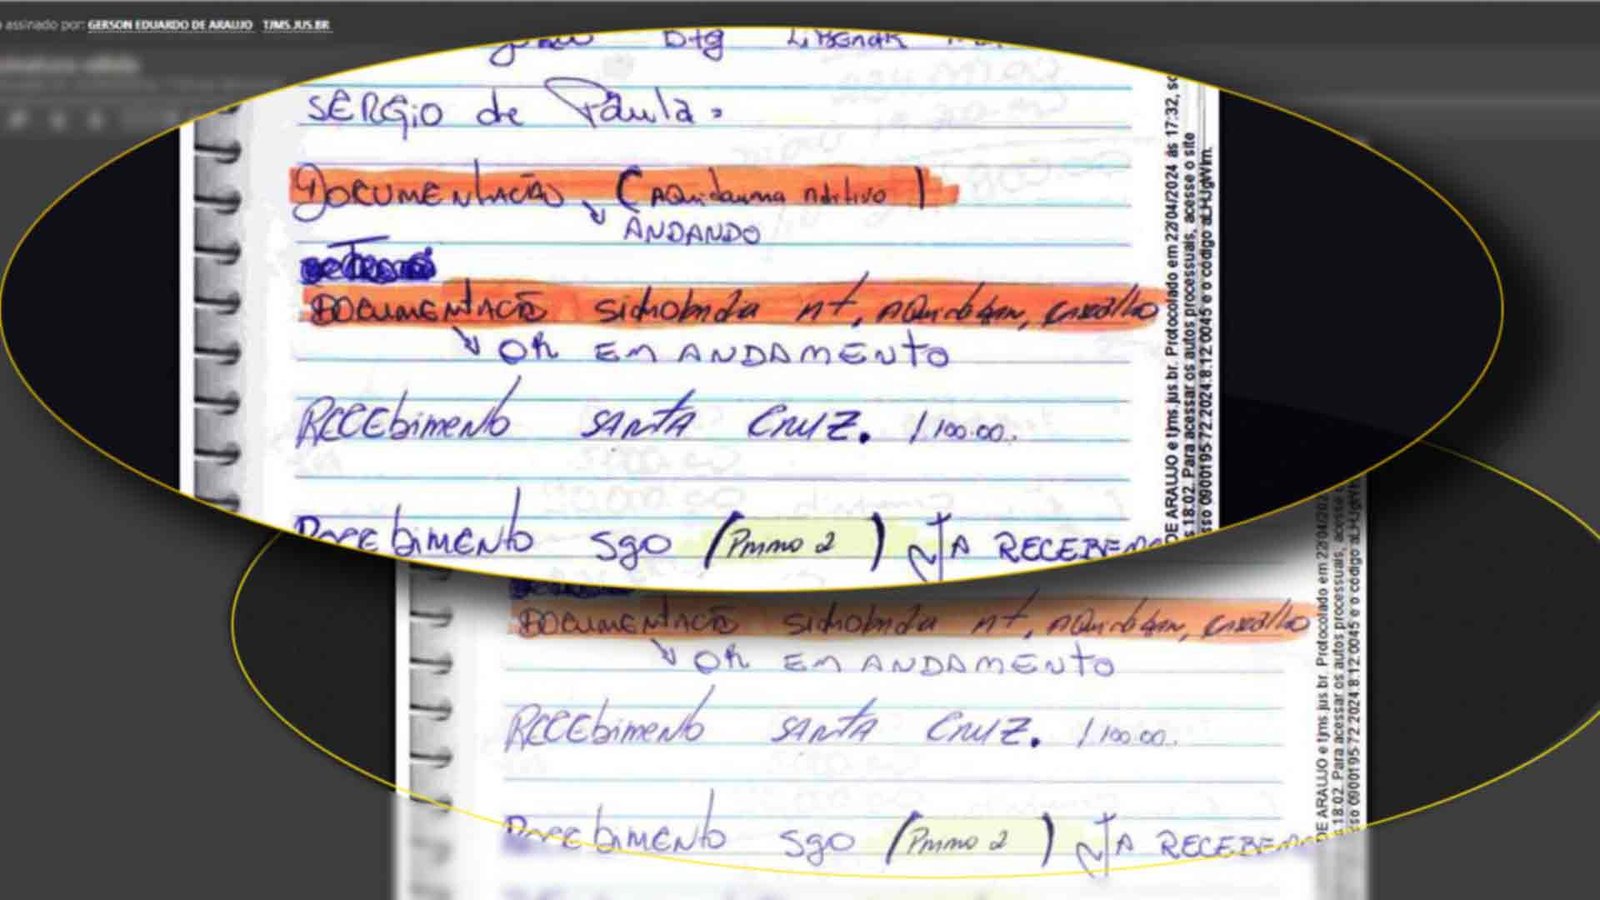 assinado por: GERSON EDUARDO DE ARAUJO TJMS.JUS.BR
SERGiO de Paula:
DOCUMENTAÇÃO (AQuidauana Aditivo)
↘ ANDANDO
DOCUMENTAÇÃO sidrolandia nt, AQuidauan,
↘ OR EM ANDAMENTO
RECEbimento SANTA CRUZ. 1.100.00.
RECEbIMENTO SGO (Pmmo 2) A RECEBE
DE ARAUJO e tjms.jus.br. Protocolado em 22/04/2024 às 17:32, so
s 18:02. Para acessar os autos processuais, acesse o site
sso 0900195-72.2024.8.12.0045 e o código aLHJgWIm.
DOCUMENTAÇÃO sidrolandia nt, AQuidauan,
↘ OR EM ANDAMENTO
RECEbimento SANTA CRUZ. 1.100.00.
RECEbIMENTO SGO (Pmmo 2) A RECEBE
DE ARAUJO e tjms.jus.br. Protocolado em 22/04/20
s 18:02. Para acessar os autos processuais, acesse
sso 0900195-72.2024.8.12.0045 e o código aLHJgW